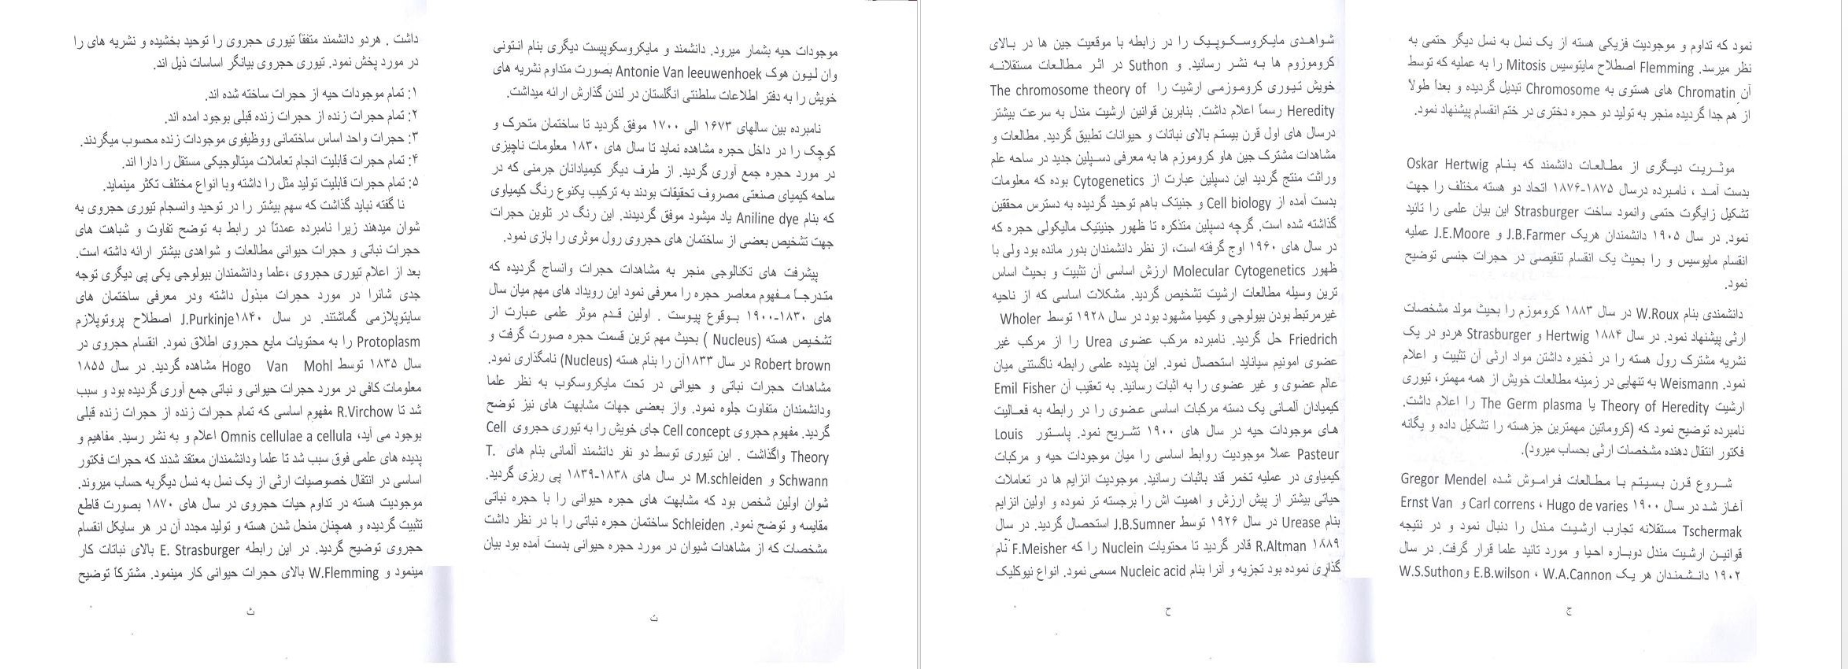 موجودات حیه بشمار میرود. دانشمند و مایکروسکوپیست دیگری بنام انتونی
وان لیون هوک Antonie Van leeuwenhoek بصورت متداوم نشریه های
خویش را به دفتر اطلاعات سلطنتی انگلستان در لندن گذارش ارائه میداشت.
نامبرده بین سالهای ۱۶۷۳ الی ۱۷۰۰ موفق گردید تا ساختمان متحرک و
کوچک را در داخل حجره مشاهده نماید تا سال های ۱۸۳۰ معلومات ناچیزی
در مورد حجره جمع آوری گردید. از طرف دیگر کیمیادانان جرمنی که در
ساحه کیمیای صنعتی مصروف تحقیقات بودند به ترکیب یکنوع رنگ کیمیاوی
که بنام Aniline dye یاد میشود موفق گردیدند. این رنگ در تلوین حجرات
جهت تشخیص بعضی از ساختمان های حجروی رول موثری را بازی نمود.
پیشرفت های تکنالوجی منجر به مشاهدات حجرات وانساج گردیده که
متدرجاً مفهوم معاصر حجره را معرفی نمود این رویداد های مهم میان سال
های ۱۸۳۰-۱۹۰۰ بوقوع پیوست . اولین قدم موثر علمی عبارت از
تشخیص هسته (Nucleus ) بحیث مهم ترین قسمت حجره صورت گرفت و
Robert brown در سال ۱۸۳۳آن را بنام هسته (Nucleus) نامگذاری نمود.
مشاهدات حجرات نباتی و حیوانی در تحت مایکروسکوب به نظر علما
ودانشمندان متفاوت جلوه نمود. واز بعضی جهات مشابهت های نیز توضح
گردید. مفهوم حجروی Cell concept جای خویش را به تیوری حجروی Cell
Theory واگذاشت . این تیوری توسط دو نفر دانشمند آلمانی بنام های T.
Schwann و M.schleiden در سال های ۱۸۳۸-۱۸۳۹ پی ریزی گردید.
شوان اولین شخص بود که مشابهت های حجره حیوانی را با حجره نباتی
مقایسه و توضح نمود. Schleiden ساختمان حجره نباتی را با در نظر داشت
مشخصات که از مشاهدات شیوان در مورد حجره حیوانی بدست آمده بود بیان
ت
داشت . هردو دانشمند متفقاً تیوری حجروی را توحید بخشیده و نشریه های را
در مورد پخش نمود. تیوری حجروی بیانگر اساسات ذیل اند.
۱: تمام موجودات حیه از حجرات ساخته شده اند.
۲: تمام حجرات زنده از حجرات زنده قبلی بوجود امده اند.
۳: حجرات واحد اساس ساختمانی ووظیفوی موجودات زنده محسوب میگردند.
۴: تمام حجرات قابلیت انجام تعاملات میتالوجیکی مستقل را دارا اند.
۵: تمام حجرات قابلیت تولید مثل را داشته وبا انواع مختلف تکثر مینماید.
نا گفته نباید گذاشت که سهم بیشتر را در توحید وانسجام تیوری حجروی به
شوان میدهند زیرا نامبرده عمدتاً در رابط به توضح تفاوت و شباهت های
حجرات نباتی و حجرات حیوانی مطالعات و شواهدی بیشتر ارائه داشته است.
بعد از اعلام تیوری حجروی ،علما ودانشمندان بیولوجی یکی پی دیگری توجه
جدی شانرا در مورد حجرات مبذول داشته ودر معرفی ساختمان های
سایتوپلازمی گماشتند. در سال ۱۸۴۰J.Purkinje اصطلاح پروتوپلازم
Protoplasm را به محتویات مایع حجروی اطلاق نمود. انقسام حجروی در
سال ۱۸۳۵ توسط Hogo Van Mohl مشاهده گردید. در سال ۱۸۵۵
معلومات کافی در مورد حجرات حیوانی و نباتی جمع آوری گردیده بود و سبب
شد تا R.Virchow مفهوم اساسی که تمام حجرات زنده از حجرات زنده قبلی
بوجود می آید، Omnis cellulae a cellula اعلام و به نشر رسید. مفاهیم و
پدیده های علمی فوق سبب شد تا علما ودانشمندان معتقد شدند که حجرات فکتور
اساسی در انتقال خصوصیات ارثی از یک نسل به نسل دیگربه حساب میروند.
موجودیت هسته در تداوم حیات حجروی در سال های ۱۸۷۰ بصورت قاطع
تثبیت گردیده و همچنان منحل شدن هسته و تولید مجدد آن در هر سایکل انقسام
حجروی توضیح گردید. در این رابطه E. Strasburger بالای نباتات کار
مینمود و W.Flemming بالای حجرات حیوانی کار مینمود. مشترکاً توضیح
ث
نمود که تداوم و موجودیت فزیکی هسته از یک نسل به نسل دیگر حتمی به
نظر میرسد. Flemming اصطلاح مایتوسیس Mitosis را به عملیه که توسط
آن Chromatin های هستوی به Chromosome تبدیل گردیده و بعداً طولاً
از هم جدا گردیده منجر به تولید دو حجره دختری در ختم انقسام پیشنهاد نمود.
موثریت دیگری از مطالعات دانشمند که بنام Oskar Hertwig
بدست آمد ، نامبرده درسال ۱۸۷۵-۱۸۷۶ اتحاد دو هسته مختلف را جهت
تشکیل زایگوت حتمی وانمود ساخت Strasburger این بیان علمی را تائید
نمود. در سال ۱۹۰۵ دانشمندان هریک J.B.Farmer و J.E.Moore عملیه
انقسام مایوسیس و را بحیث یک انقسام تنقیصی در حجرات جنسی توضیح
نمود.
دانشمندی بنام W.Roux در سال ۱۸۸۳ کروموزم را بحیث مولد مشخصات
ارثی پیشنهاد نمود. در سال ۱۸۸۴ Hertwig و Strasburger هردو در یک
نشریه مشترک رول هسته را در ذخیره داشتن مواد ارثی آن تثبیت و اعلام
نمود. Weismann به تنهایی در زمینه مطالعات خویش از همه مهمتر، تیوری
ارشیت Theory of Heredity یا The Germ plasma را اعلام داشت.
نامبرده توضیح نمود که (کروماتین مهمترین جزهسته را تشکیل داده و یگانه
فکتور انتقال دهنده مشخصات ارثی بحساب میرود).
شروع قرن بسیتم با مطالعات فراموش شده Gregor Mendel
آغاز شد در سال ۱۹۰۰ Carl correns ، Hugo de varies و Ernst Van
Tschermak مستقلانه تجارب ارشیت مندل را دنبال نمود و در نتیجه
قوانین ارشیت مندل دوباره احیا و مورد تائید علما قرار گرفت. در سال
۱۹۰۲ دانشمندان هر یک E.B.wilson ، W.A.Cannon وW.S.Suthon
ج
شواهدی مایکروسکوپیک را در رابطه با موقعیت جین ها در بالای
کروموزوم ها به نشر رسانید. و Suthon در اثر مطالعات مستقلانه
خویش تیوری کروموزمی ارشیت را The chromosome theory of
Heredity رسماً اعلام داشت. بنابرین قوانین ارشیت مندل به سرعت بیشتر
درسال های اول قرن بیستم بالای نباتات و حیوانات تطبیق گردید. مطالعات و
مشاهدات مشترک جین هاو کروموزم ها به معرفی دسپلین جدید در ساحه علم
وراثت منتج گردید این دسپلین عبارت از Cytogenetics بوده که معلومات
بدست آمده از Cell biology و جنیتک باهم توحید گردیده به دسترس محققین
گذاشته شده است. گرچه دسپلین متذکره تا ظهور جنیتک مالیکولی حجره که
در سال های ۱۹۶۰ اوج گرفته است، از نظر دانشمندان بدور مانده بود ولی با
ظهور Molecular Cytogenetics ارزش اساسی آن تثبیت و بحیث اساس
ترین وسیله مطالعات ارشیت تشخیص گردید. مشکلات اساسی که از ناحیه
غیرمرتبط بودن بیولوجی و کیمیا مشهود بود در سال ۱۹۲۸ توسط Wholer
Friedrich حل گردید. نامبرده مرکب عضوی Urea را از مرکب غیر
عضوی امونیم سیاناید استحصال نمود. این پدیده علمی رابطه ناگستنی میان
عالم عضوی و غیر عضوی را به اثبات رسانید. به تعقیب آن Emil Fisher
کیمیادان آلمانی یک دسته مرکبات اساسی عضوی را در رابطه به فعالیت
های موجودات حیه در سال های ۱۹۰۰ تشریح نمود. پاستور Louis
Pasteur عملا موجودیت روابط اساسی را میان موجودات حیه و مرکبات
کیمیاوی در عملیه تخمر قند باثبات رسانید. موجودیت انزایم ها در تعاملات
حیاتی بیشتر از پیش ارزش و اهمیت اش را برجسته تر نموده و اولین انزایم
بنام Urease در سال ۱۹۲۶ توسط J.B.Sumner استحصال گردید. در سال
۱۸۸۹ R.Altman قادر گردید تا محتویات Nuclein را که F.Meisher نام
گذاری نموده بود تجزیه و آنرا بنام Nucleic acid مسمی نمود. انواع نیوکلیک
ح